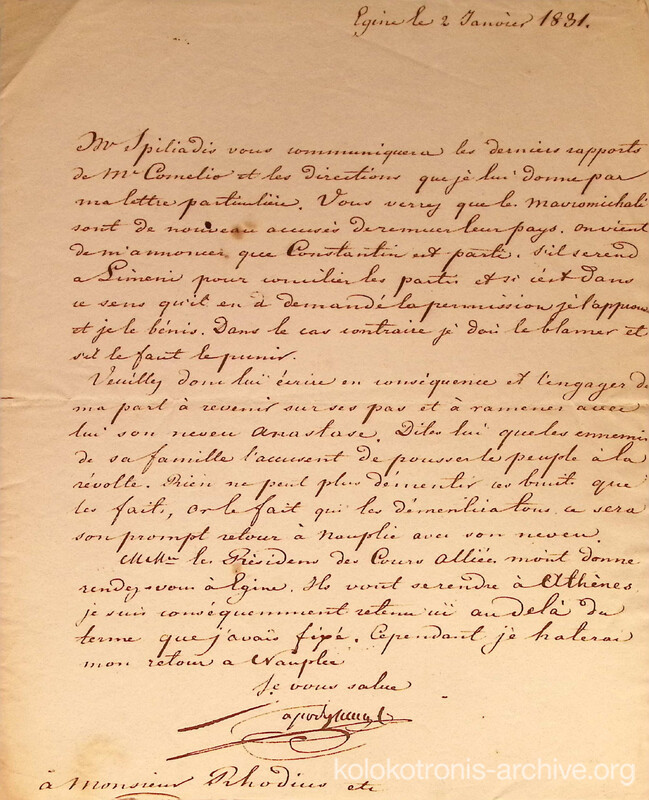 Egine le 2 Janvier 1831.
Mr Spiliadis vous communiquera les derniers rapports
de Mr Cornelio et les directions que je lui donne par
ma lettre particulière. Vous verrez que les Mavromichali
sont de nouveau accusés de remuer leur pays. on vient
de m'annoncer que Constantin est parti. S'il se rend
a Limeni pour concilier les partis et si c'est dans
ce sens qu'il en a demandé la permission je l'approuve
et je le bénis. Dans le cas contraire je dois le blamer et
s'il le faut le punir.
Veuillez donc lui écrire en conséquence et l'engager de
ma part à revenir sur ses pas et à ramener avec
lui son neveu Anastase. Dites lui que les ennemis
de sa famille l'accusent de pousser le peuple à la
révolte. Rien ne peut plus démentir ces bruits que
les faits, or le fait qui les démentira tous, ce sera
son prompt retour à Nauplie avec son neveu.
MM. les Résidens des Cours Alliées m'ont donné
rendez-vous à Egine. Ils vont se rendre à Athènes
je suis conséquemment retenu ici au delà du
terme que j'avais fixé. Cependant je haterai
mon retour a Nauplie
Je vous salue
à Monsieur Rhodius etc
kolokotronis-archive.org